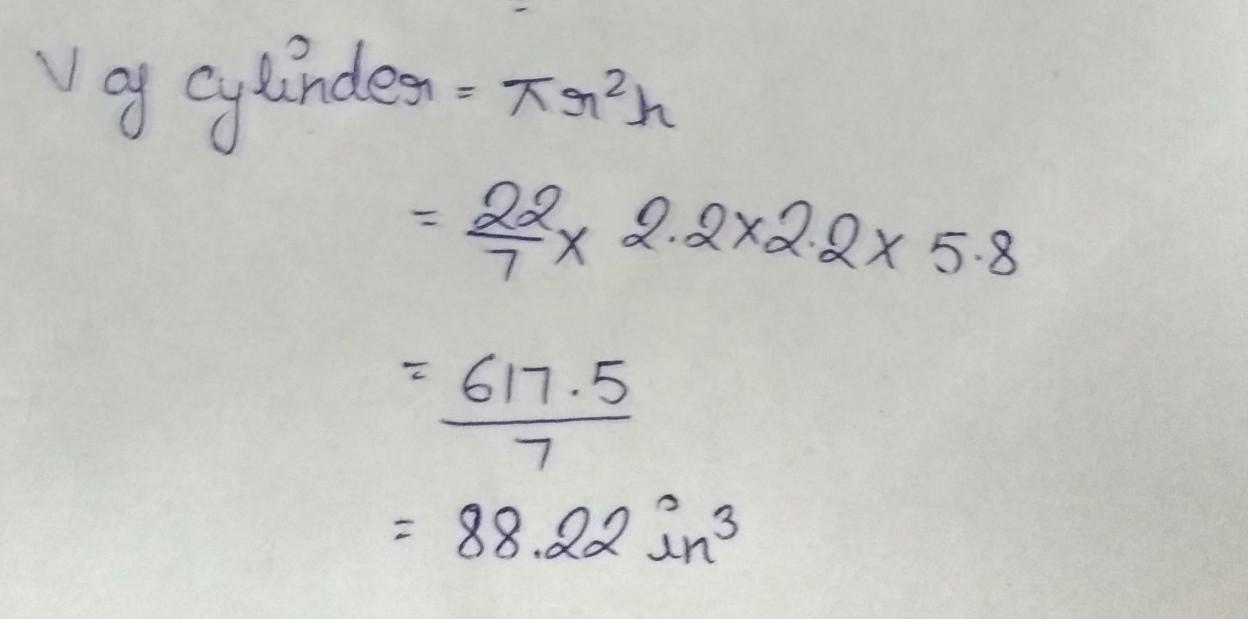 V of cylinder = πr²h
= 22/7 × 2.2×2.2× 5.8
= 617.5/7
= 88.22 in³